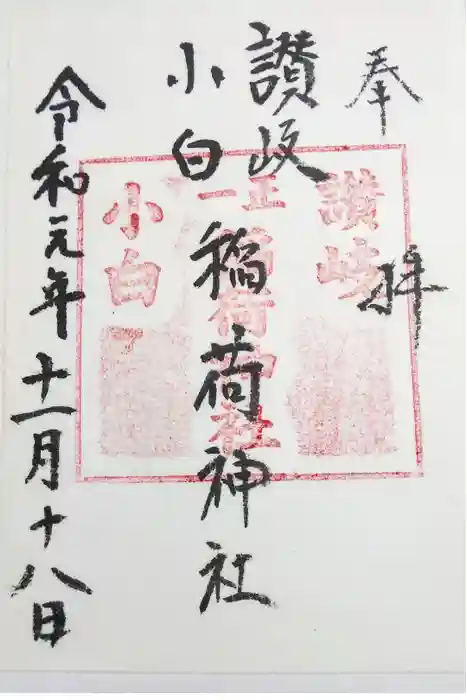 奉拝
讃岐
小白
稲荷神社
令和元年十一月十八日
讃岐
正一
稲荷神社
小白